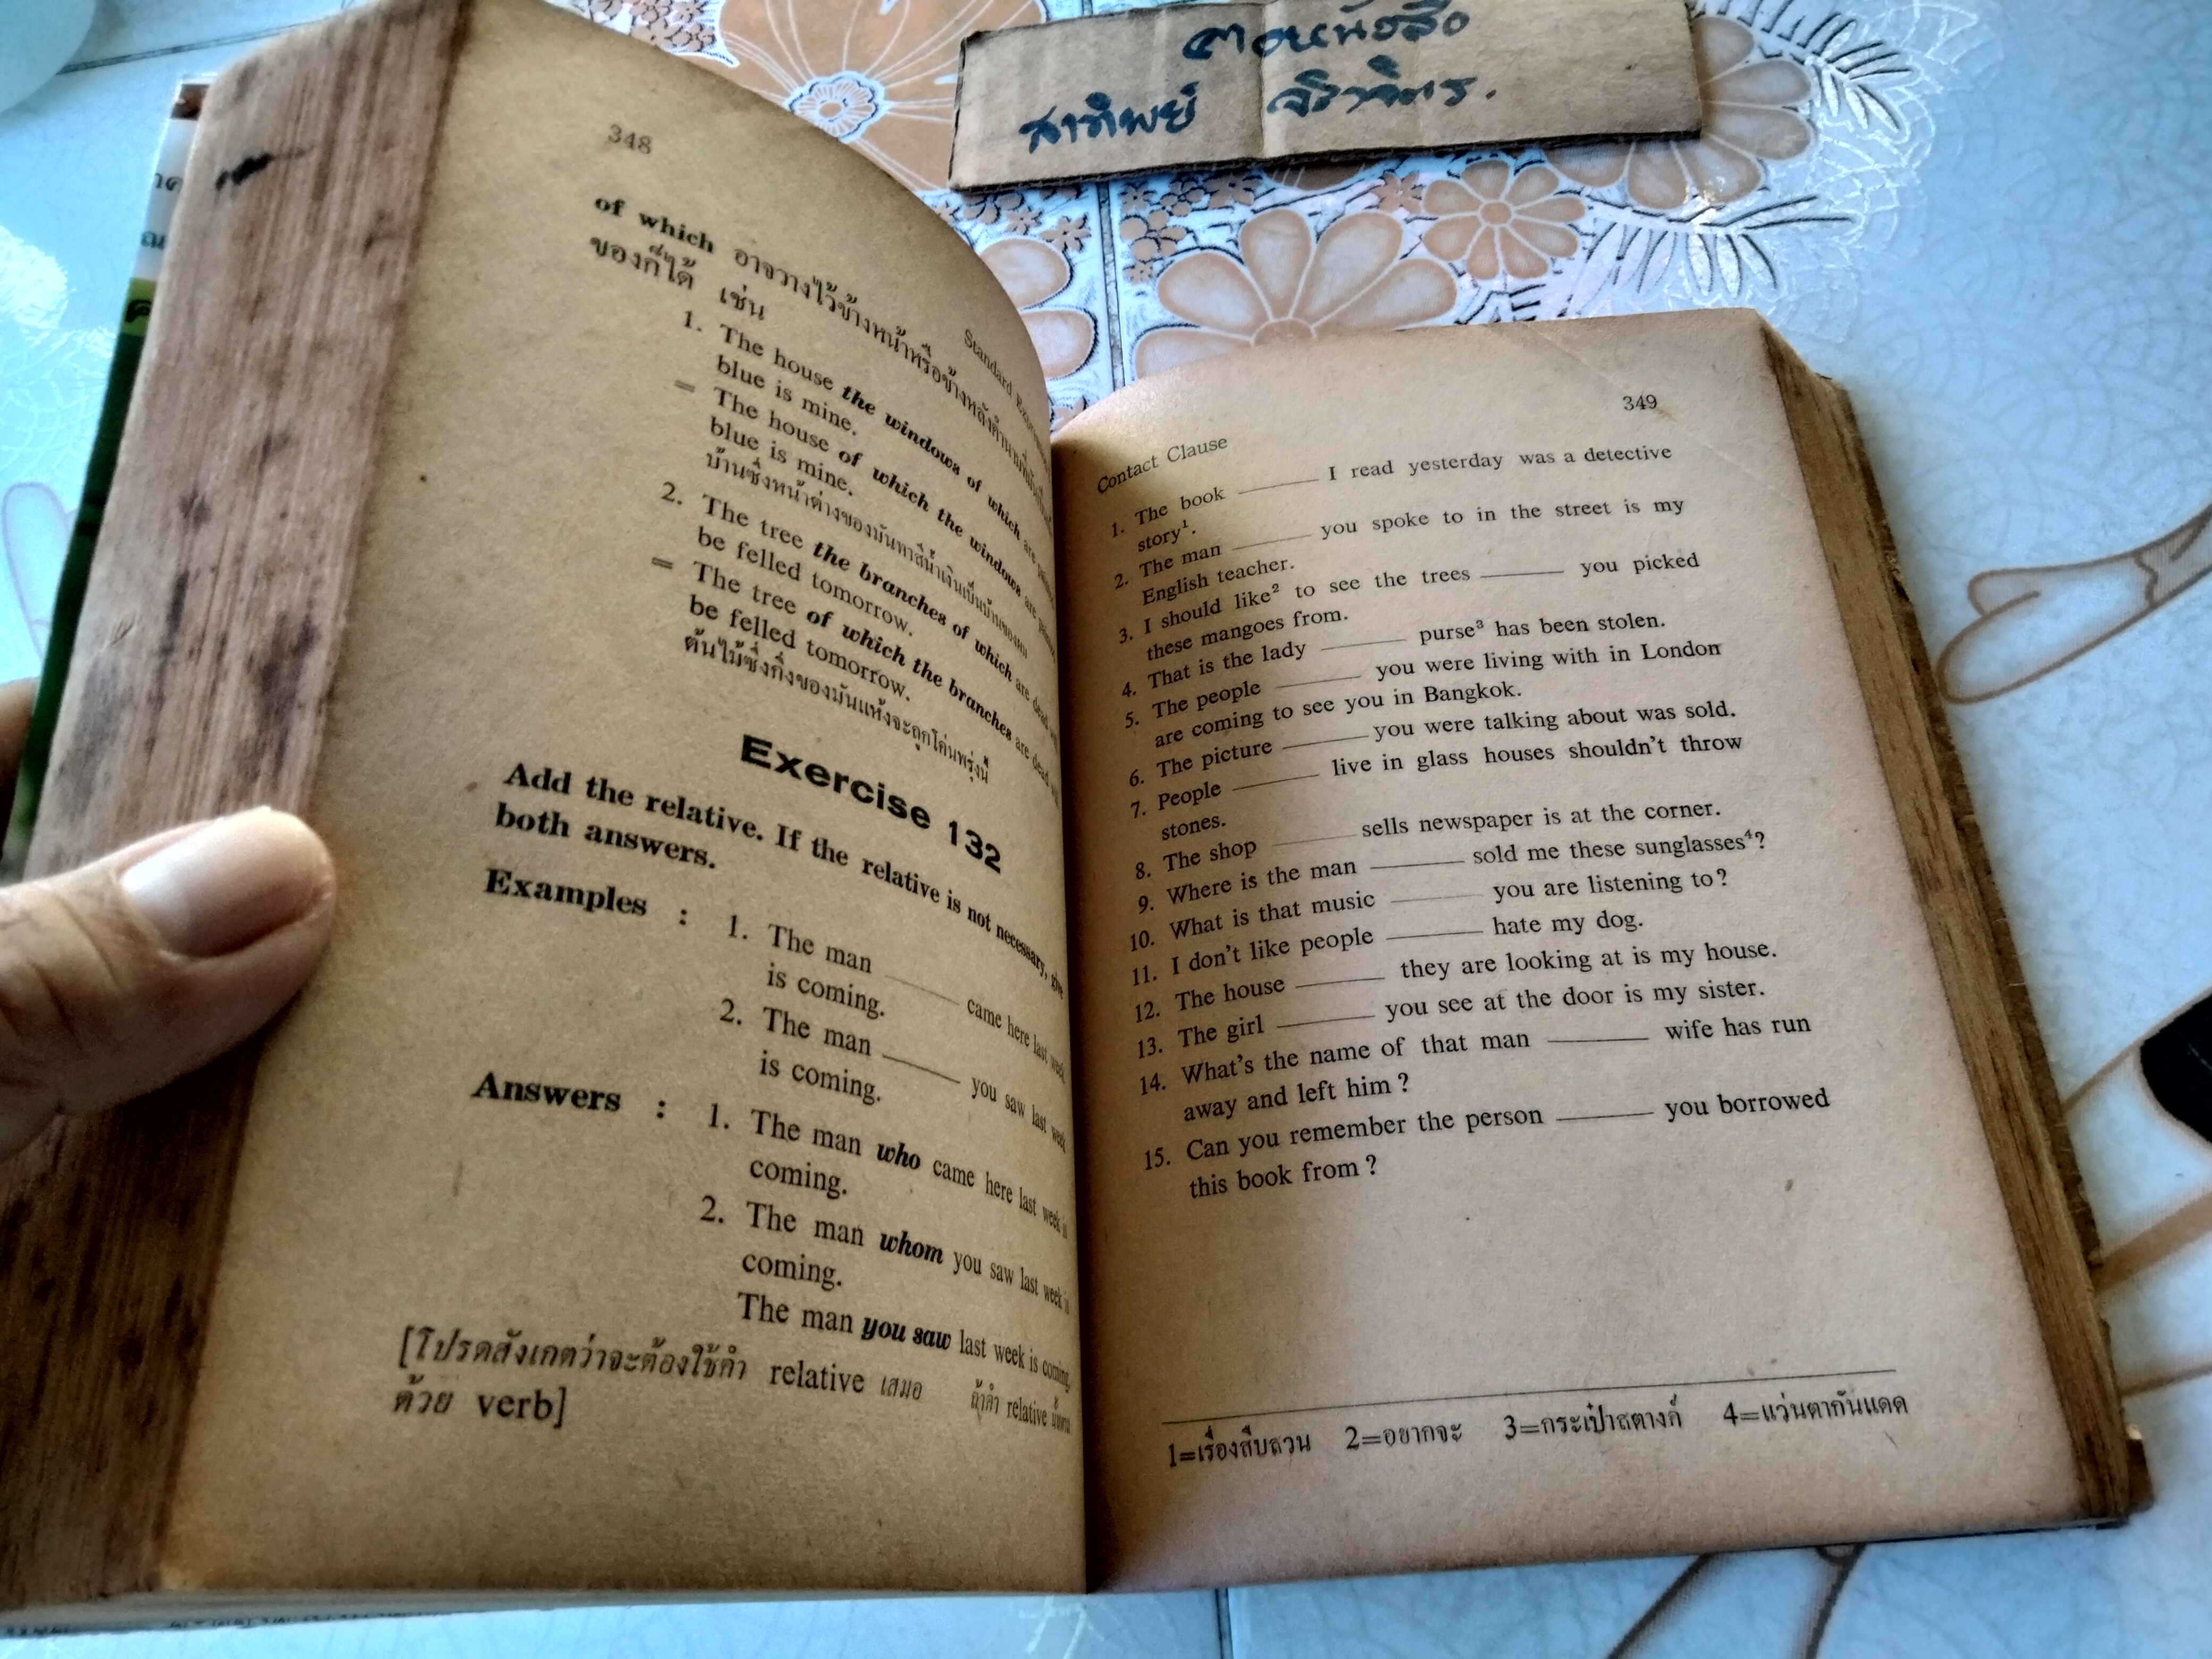 สาทิพย์
348
Standard
of which อาจวางไว้ข้างหน้าหรือข้างหลังคำนามที่มันเป็น
ของก็ได้ เช่น
1. The house the windows of which are
blue is mine.
= The house of which the windows are
blue is mine.
บ้านซึ่งหน้าต่างของมันทาสีน้ำเงินเป็นบ้านของผม
2. The tree the branches of which are dead will
be felled tomorrow.
= The tree of which the branches are dead will
be felled tomorrow.
ต้นไม้ซึ่งกิ่งของมันแห้งจะถูกโค่นพรุ่งนี้
Exercise 132
Add the relative. If the relative is not necessary, give
both answers.
Examples : 1. The man ______ came here last week
is coming.
2. The man ______ you saw last week
is coming.
Answers : 1. The man who came here last week is
coming.
2. The man whom you saw last week is
coming.
The man you saw last week is coming.
[โปรดสังเกตว่าจะต้องใช้คำ relative เสมอ ถ้าคำ relative
ด้วย verb]
349
Contact Clause
1. The book ______ I read yesterday was a detective
story¹.
2. The man ______ you spoke to in the street is my
English teacher.
3. I should like² to see the trees ______ you picked
these mangoes from.
4. That is the lady ______ purse³ has been stolen.
5. The people ______ you were living with in London
are coming to see you in Bangkok.
6. The picture ______ you were talking about was sold.
7. People ______ live in glass houses shouldn't throw
stones.
8. The shop ______ sells newspaper is at the corner.
9. Where is the man ______ sold me these sunglasses⁴?
10. What is that music ______ you are listening to?
11. I don't like people ______ hate my dog.
12. The house ______ they are looking at is my house.
13. The girl ______ you see at the door is my sister.
14. What's the name of that man ______ wife has run
away and left him ?
15. Can you remember the person ______ you borrowed
this book from ?
1=เรื่องสืบสวน 2=อยากจะ 3=กระเป๋าสตางก์ 4=แว่นตากันแดด